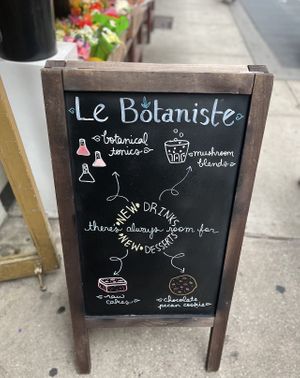 Le Botaniste
botanical
tonics
mushroom
blends
NEW DRINKS
there's always room for
NEW DESSERTS
raw
cakes
chocolate
pecan cookie